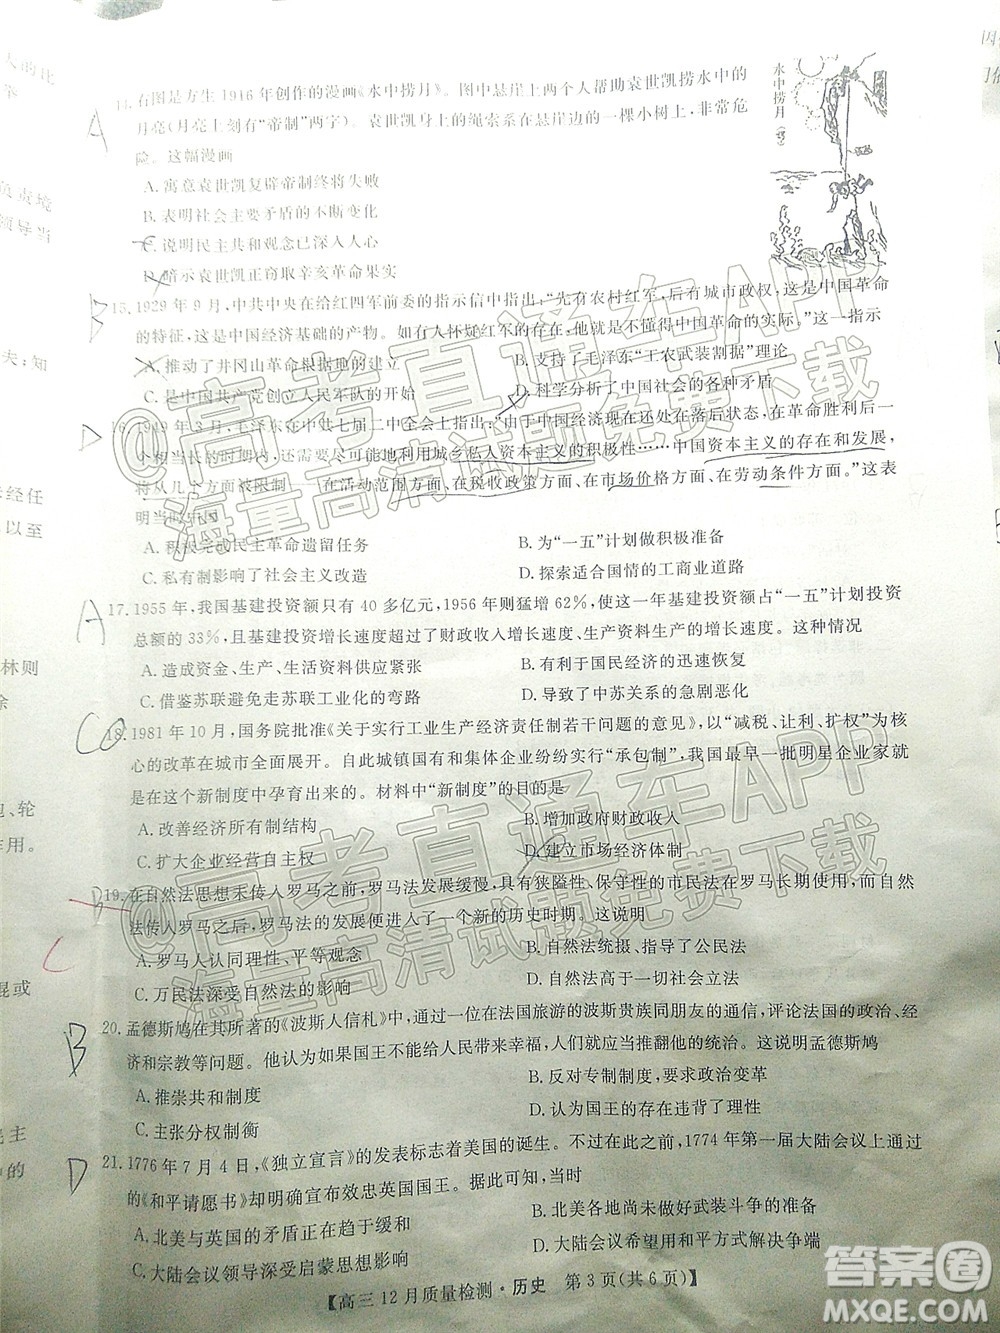 14. 右图是方生 1916 年创作的漫画《水中捞月》。图中悬崖上两个人帮助袁世凯捞水中的
月亮(月亮上刻有“帝制”两字)。袁世凯身上的绳索系在悬崖边的一棵小树上,非常危
险。这幅漫画
A. 寓意袁世凯复辟帝制终将失败
B. 表明社会主要矛盾的不断变化
C. 说明民主共和观念已深入人心
D. 暗示袁世凯正窃取辛亥革命果实
水中捞月
15. 1929 年 9 月,中共中央在给红四军前委的指示信中指出:“先有农村红军,后有城市政权,这是中国革命
的特征,这是中国经济基础的产物。如有人怀疑红军的存在,他就是不懂得中国革命的实际。”这一指示
A. 推动了井冈山革命根据地的建立
B. 支持了毛泽东“工农武装割据”理论
C. 是中国共产党创立人民军队的开始
D. 科学分析了中国社会的各种矛盾
16. 1949 年 3 月,毛泽东在中共七届二中全会上指出:“由于中国经济现在还处在落后状态,在革命胜利后一
个相当长的时期内,还需要尽可能地利用城乡私人资本主义的积极性……中国资本主义的存在和发展,
将从几个方面被限制——在活动范围方面、在税收政策方面、在市场价格方面、在劳动条件方面。”这表
明当时中国
A. 积极完成民主革命遗留任务
B. 为“一五”计划做积极准备
C. 私有制影响了社会主义改造
D. 探索适合国情的工商业道路
17. 1955 年,我国基建投资额只有 40 多亿元,1956 年则猛增 62%,使这一年基建投资额占“一五”计划投资
总额的 33%,且基建投资增长速度超过了财政收入增长速度、生产资料增长速度。这种情况
A. 造成资金、生产、生活资料供应紧张
B. 有利于国民经济的迅速恢复
C. 借鉴苏联避免走苏联工业化的弯路
D. 导致了中苏关系的急剧恶化
18. 1981 年 10 月,国务院批准《关于实行工业生产经济责任制若干问题的意见》,以“减税、让利、扩权”为核
心的改革在城市全面展开。自此城镇国有和集体企业纷纷实行“承包制”,我国最早一批明星企业家就是
在这个新制度中孕育出来的。材料中“新制度”的目的是
A. 改善经济所有制结构
B. 增加政府财政收入
C. 扩大企业经营自主权
D. 建立市场经济体制
19. 在自然法思想未传人罗马之前,罗马法发展缓慢,具有狭隘性、保守性的市民法在罗马长期使用,而自然
法传人罗马之后,罗马法的发展便进入了一个新的历史时期。这说明
A. 罗马人认同理性、平等观念
B. 自然法统摄、指导了公民法
C. 万民法深受自然法的影响
D. 自然法高于一切社会立法
20. 孟德斯鸠在其所著的《波斯人信札》中,通过一位在法国旅游的波斯贵族同朋友的通信,评论法国社会、经
济和宗教等问题。他认为如果国王不能给人民带来幸福,人民就应该推翻他的统治。这说明孟德斯鸠
A. 推崇共和制度
B. 反对专制制度,要求政治变革
C. 主张分权制衡
D. 认为国王的存在违背了理性
21. 1776 年 7 月 4 日,《独立宣言》的发表标志着美国的诞生。不过在此之前,1774 年第一届大陆会议上通过
的《和平请愿书》却明确宣布效忠英国国王。这说明当时
A. 北美与英国的矛盾正在趋于缓和
B. 北美已做好武装斗争的准备
C. 大陆会议领导深受启蒙思想影响
D. 大陆会议希望用和平方式解决争端
【高三 12 月质量检测·历史 第 3 页(共 6 页)】
@高考直通车APP
海量高清试题免费下载
@高考直通车APP
海量高清试题免费下载
答案圈
MXQE.COM